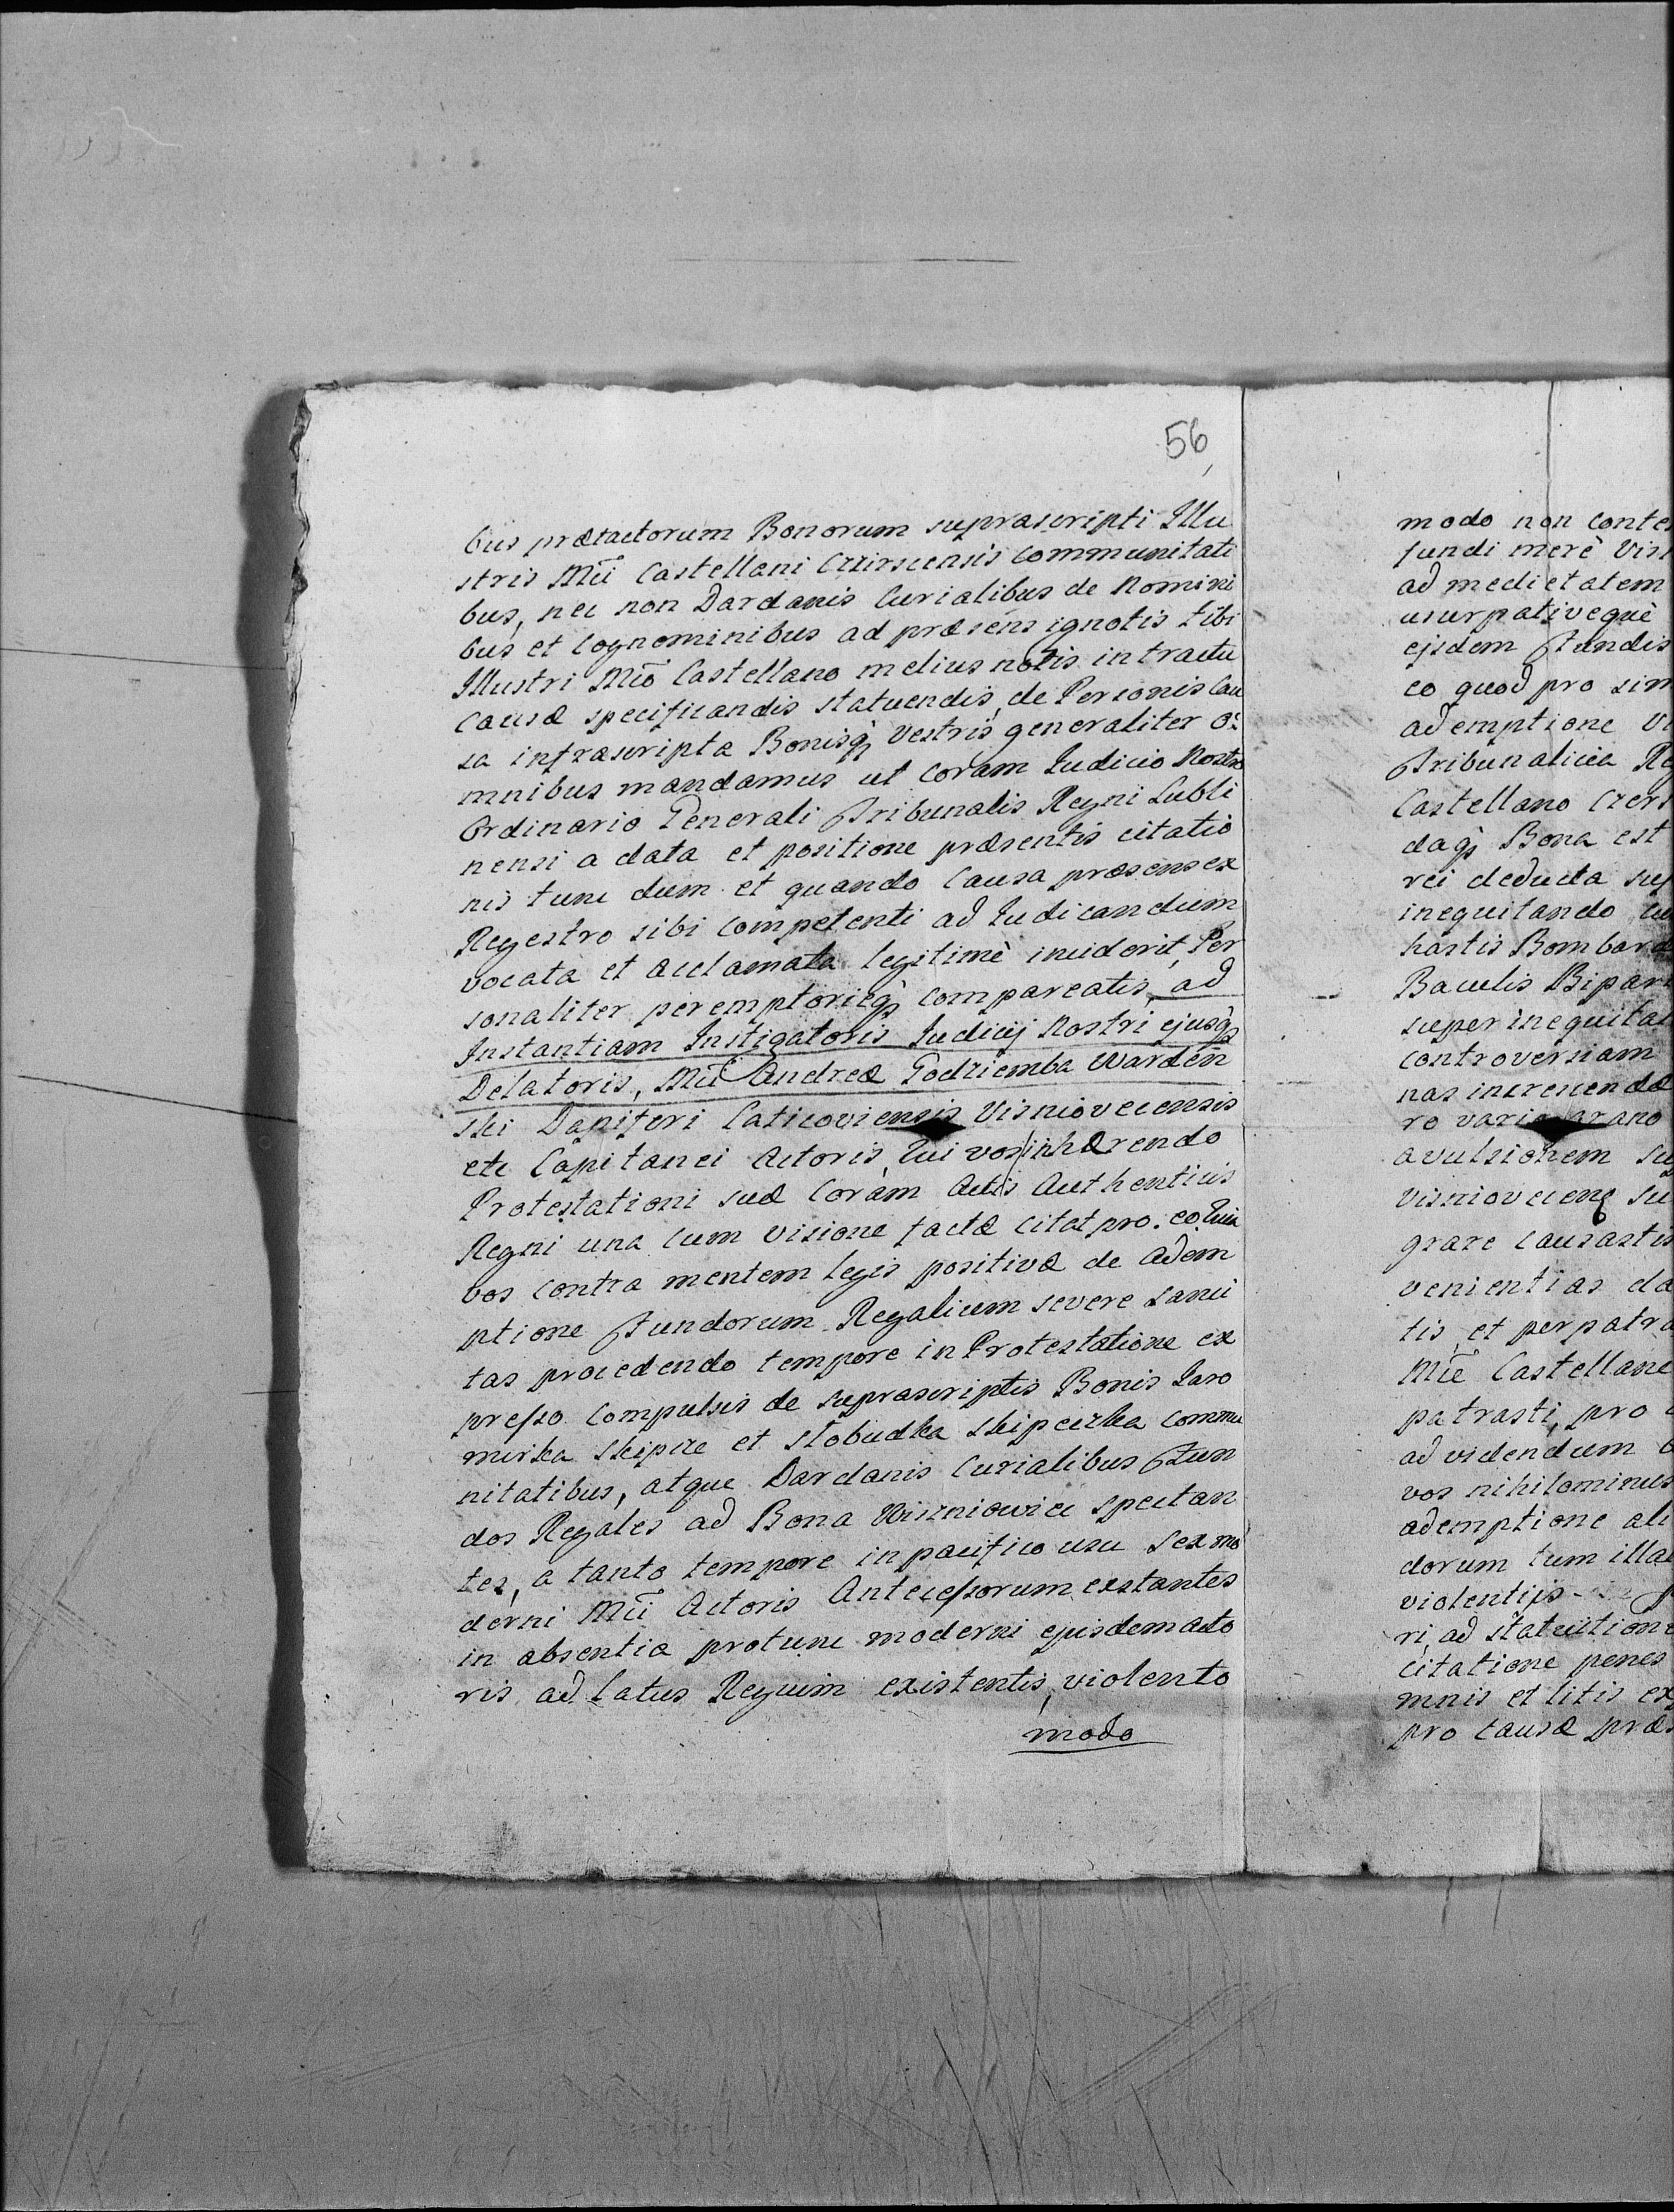 56
bus prætactorum Bonorum suprascripti Illu
stris Mci Castellani Czirscensis Communitati
bus, nec non Dardanis Curialibus de Nomini
bus et Cognominibus ad præsens ignotis tibi
Illustri Mco Castellano melius notis in tractu
Causæ specificandis statuendis, de Personis Cau
sa infrascripta Bonisq vestris generaliter o:
mnibus mandamus ut coram Iudicio Nostro
Ordinario Generali Tribunalis Regni Lubli
nensi a data et positione præsentis citatio
nis tunc dum et quando Causa præsens ex
Regestro sibi competenti ad Iudicandum
vocata et acclamata legitimè inciderit, Per
sonaliter peremptorieq compareatis, ad
Instantiam Instigatoris Iudicij Nostri ejusq
Delatoris, Mci Andreæ Godziemba Warden
ski Dapiferi Laticoviensis Visniovecensis
etc Capitanei Actoris, Qui vos inhærendo
Protestationi suæ Coram Actis Authenticis
Regni una cum visione factæ citat pro eo. Quia
vos contra mentem legis positivæ de adem
ptione Fundorum Regalium severe sanci
tas procedendo tempore in Protestatione ex
presso compulsis de suprascriptis Bonis Iaro
mirka Skipcze et Slobudka Skipeczka commu
nitatibus, atque Dardanis Curialibus Fun
dos Regales ad Bona Wiszniowice spectan
tes, a tanto tempore in pacifico usu sex mo
derni Mci Actoris Antecessorum exstantes
in absentia protunc moderni ejusdem acto
ris ad Latus Regium existentis, violento
modo
modo non conte
fundi merè Vis
ad medietatem
usurpativequè
ejsdem Fundis
eo quod pro sim
ademptione
Tribunalicia Re
Castellano Czers
daq Bona est
rei deducta sup
inequitando
hastis Bombard
Baculis Bipar
super inequita
controversiam
nas increnendæ
ro
avulsionem su
Visniovecens su
grare causastis
venientias da
tis, et perpatra
Mce Castellane
patrasti, pro
ad videndum
vos nihilominus
ademptione ali
dorum tum illa
violentijs
ri, ad statuition
citatione penes
mnis et litis ex
pro causæ præs